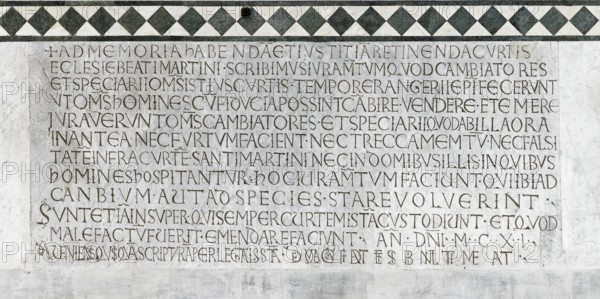 +ADMEMORIAhABENDAETIVSTITIARETINENDACVRTIS
ECLESIEBEATIMARTINI·SCRIBIMVSIVRAMTVMQVODCAMBIATORES
ETSPECIARIIOMSISTIVSCVRTIS·TEMPORERANGERIIEPIFECERVNT
VTOMShOMINESCVFIDVCIAPOSSINTCABIRE·VENDERE·ETEMERE
JVRAVERVNTOMSCAMBIATORES·ETSPECIARIIQVODABILLAORA
INANTEANECFVRTVMFACIENT·NECTRECCAMEMTV·NECFALSI
TATEINFRACVRTE·SANTIMARTININECINDOMIBVSILLISINQVIBVS
hOMINEShOSPITANTVR·hOCIVRAMTVMFACIVNTQVIIBIAD
CANBIVM·AVTADSPECIES·STAREVOLVERINT
SVNTETIAINSVPERQVISEMPERCVRTEMISTACVSTODIVNT·ETQVOD
MALEFACTVFVERIT·EMENDAREFACIVNT·AN·DNI·M·C·XI·